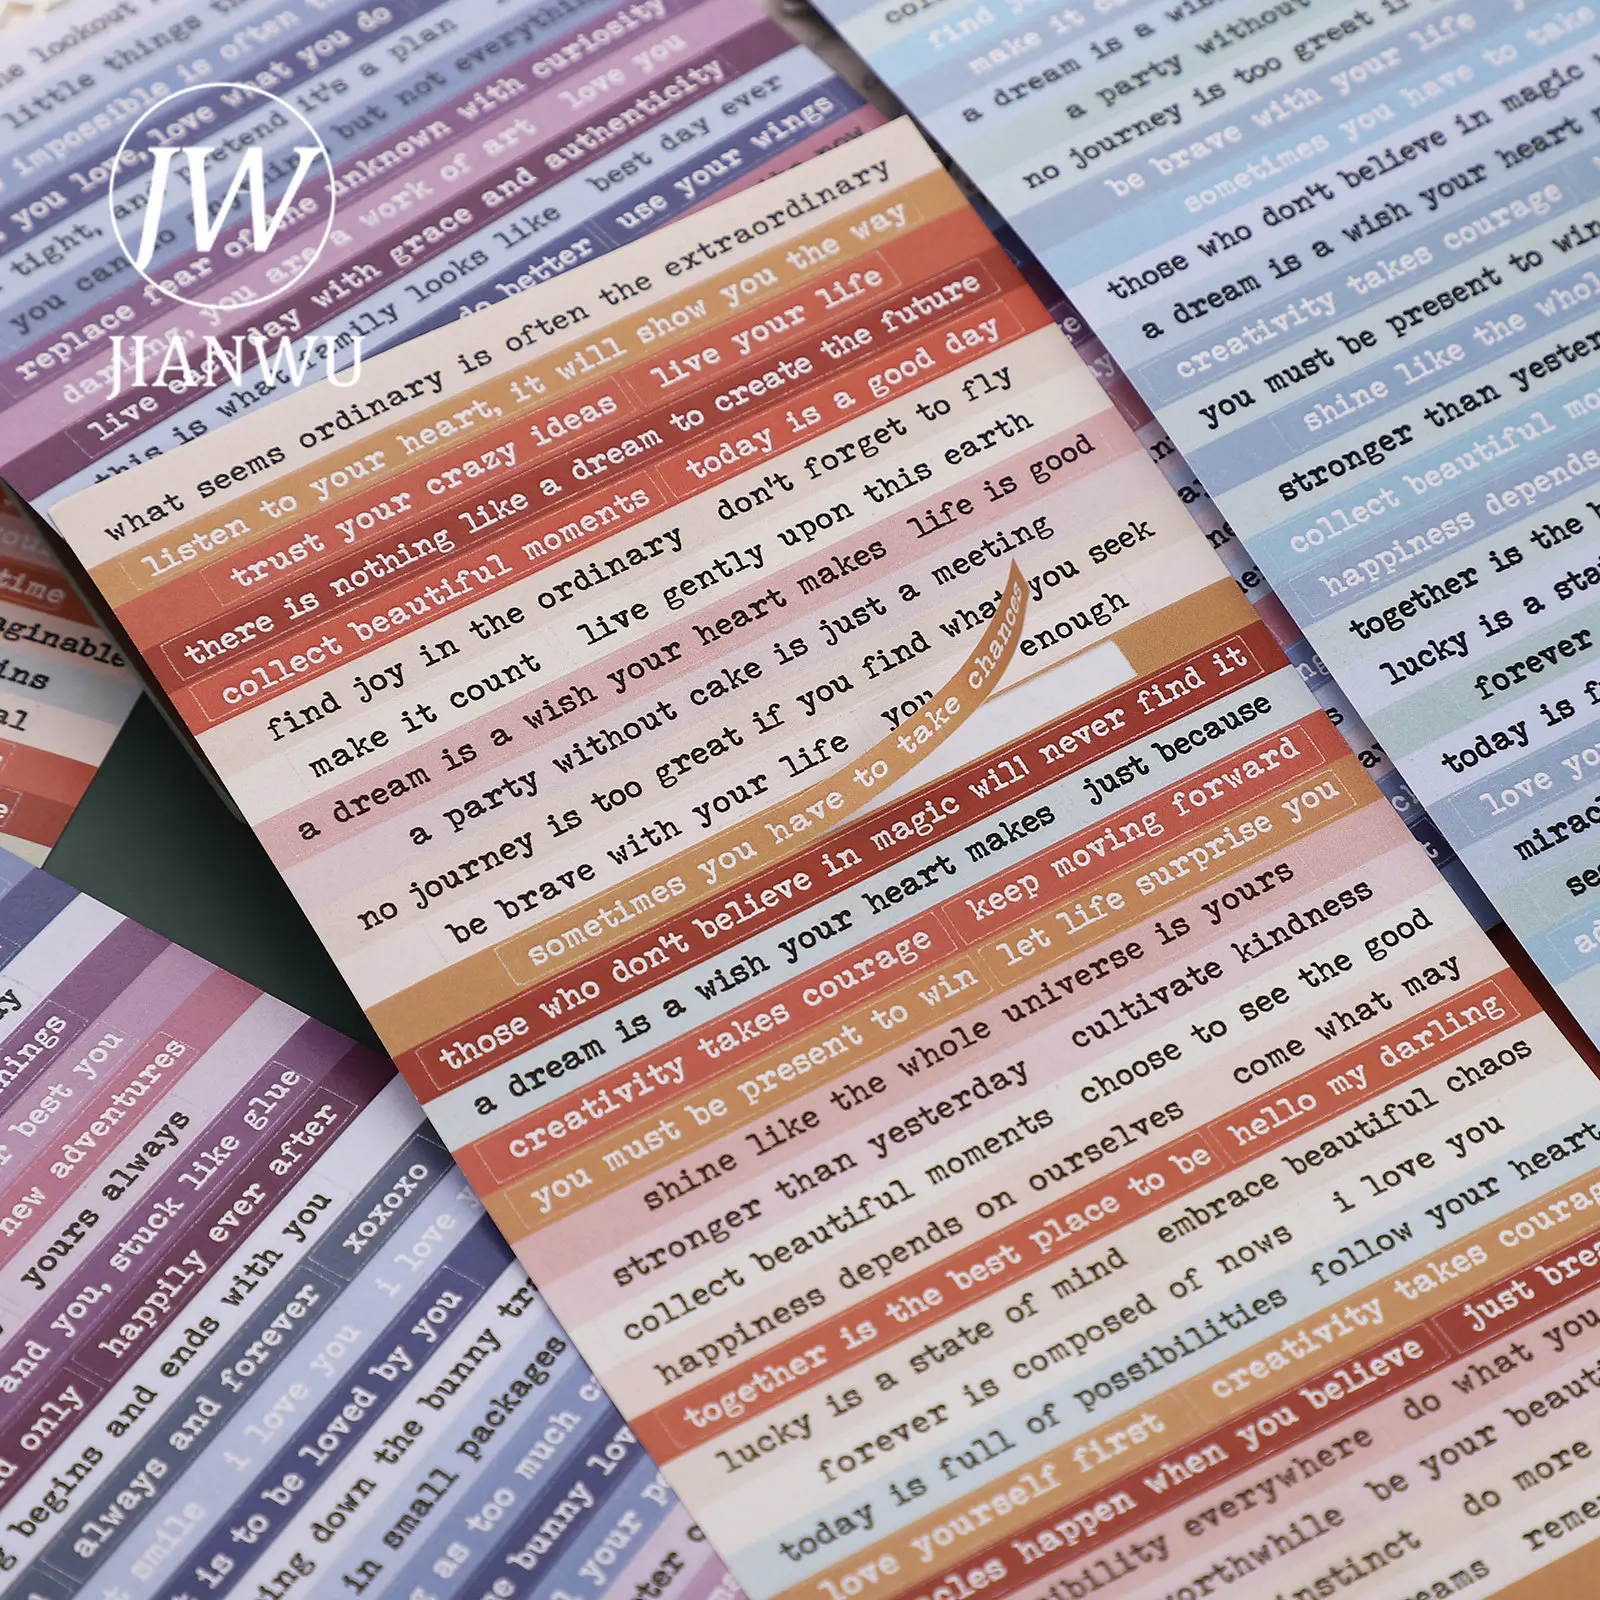 JW
JIANWU
the lookout
little things
impossible is often
you love, love what you do
tight, and pretend it's a plan
but not everything
replace fear of the unknown with curiosity
darling, you are a work of art love you
live each day with grace and authenticity
this is what family looks like best day ever
do better use your wings
what seems ordinary is often the extraordinary
listen to your heart, it will show you the way
trust your crazy ideas live your life
there is nothing like a dream to create the future
collect beautiful moments today is a good day
find joy in the ordinary don't forget to fly
make it count live gently upon this earth
a dream is a wish your heart makes life is good
a party without cake is just a meeting
no journey is too great if you find what you seek
be brave with your life you enough
sometimes you have to take chances
those who don't believe in magic will never find it
a dream is a wish your heart makes just because
creativity takes courage keep moving forward
you must be present to win let life surprise you
shine like the whole universe is yours
stronger than yesterday cultivate kindness
collect beautiful moments choose to see the good
happiness depends on ourselves come what may
together is the best place to be hello my darling
lucky is a state of mind embrace beautiful chaos
forever is composed of nows i love you
today is full of possibilities follow your heart
love yourself first creativity takes courag
cles happen when you believe just brea
ibility everywhere do what you
worthwhile be your beauti
instinct do more
reams reme
find
make it
a dream is a
a party without
no journey is too great
be brave with your life
sometimes you have to take
those who don't believe in magic
a dream is a wish your heart
creativity takes courage
you must be present to win
shine like the whol
stronger than yester
collect beautiful mo
happiness depends
together is the b
lucky is a sta
forever
today is f
love yo
mirac
se
time
aginable
ins
al
hings
r best you
new adventures
yours always
and you, stuck like glue
only happily ever after
begins and ends with you
always and forever xoxoxo
smile i love you i love
is to be loved by you
ing down the bunny tr
in small packages
as too much
e bunny lov
your